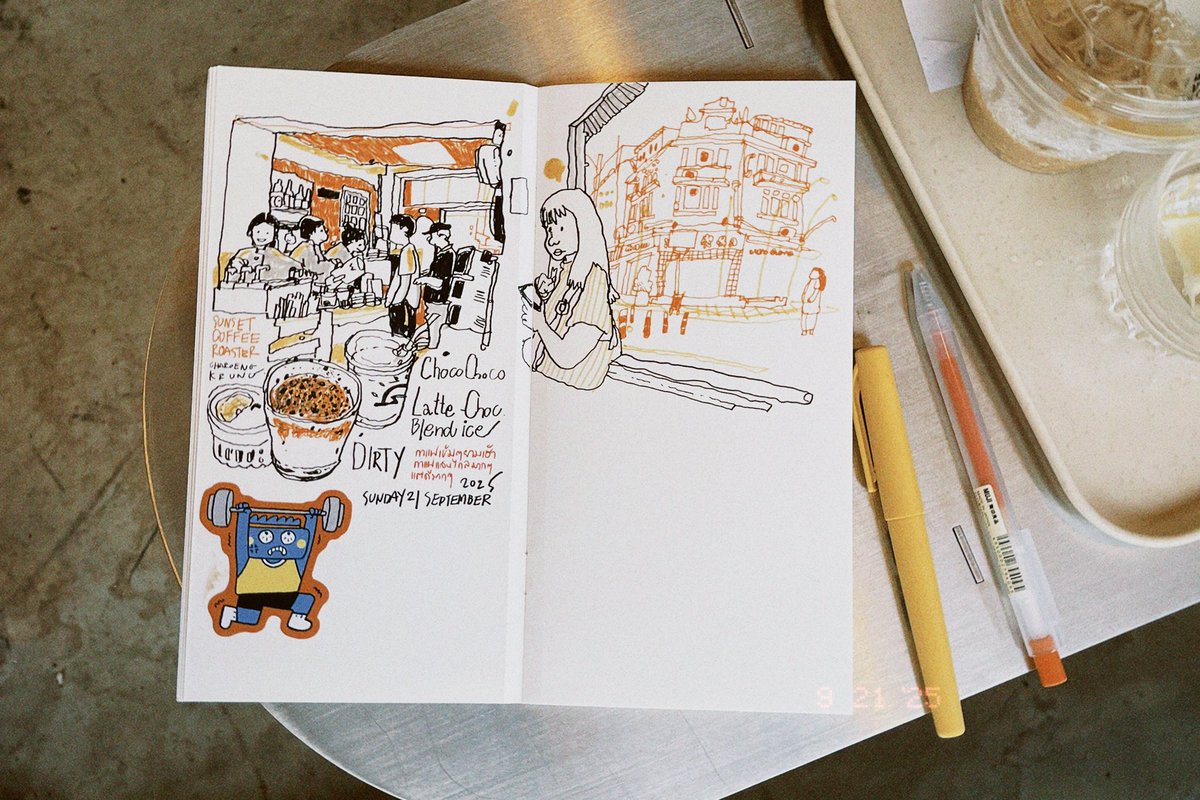 SUNSET
COFFEE
ROASTER
CHAROENG
KRUNG
ChocoChoco
Latte Choc.
Blend ice
DIRTY
กาแฟเข้มๆยามเช้า
2025
SUNDAY 21 SEPTEMBER
MUJI 無印良品
9 21 '25